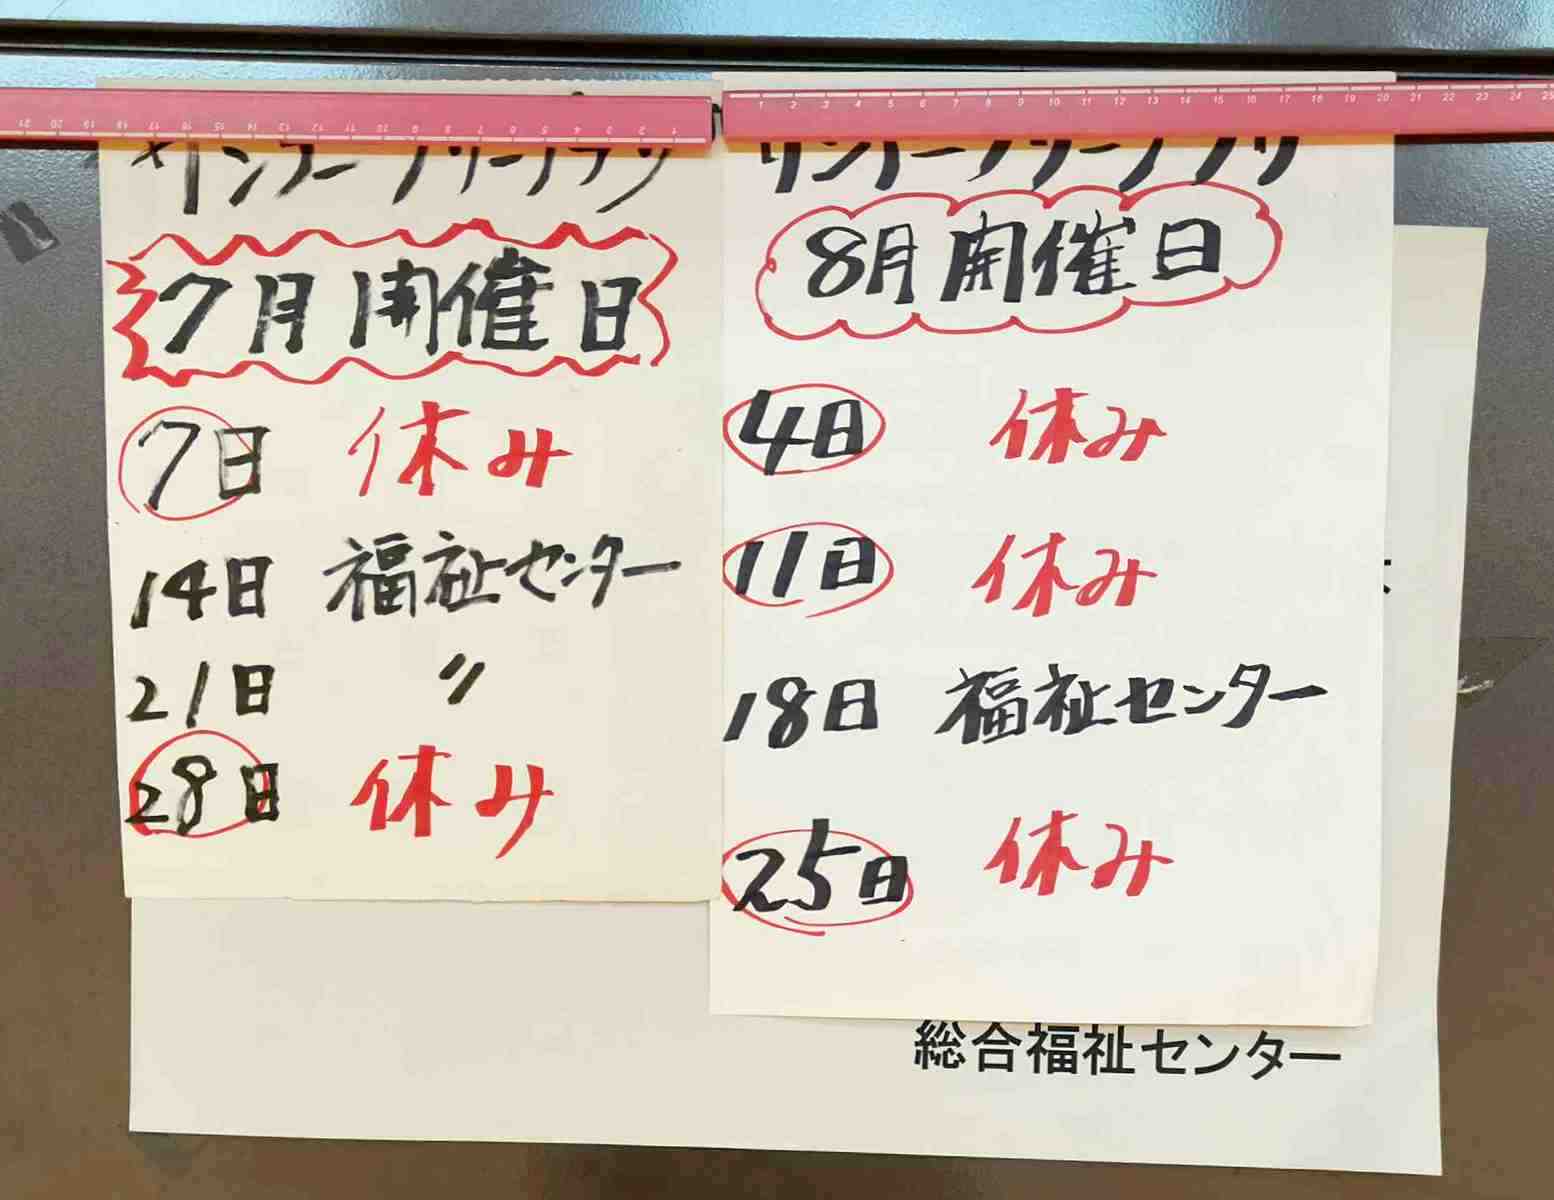 7月開催日
7日 休み
14日 福祉センター
21日 〃
28日 休み
8月開催日
4日 休み
11日 休み
18日 福祉センター
25日 休み
総合福祉センター